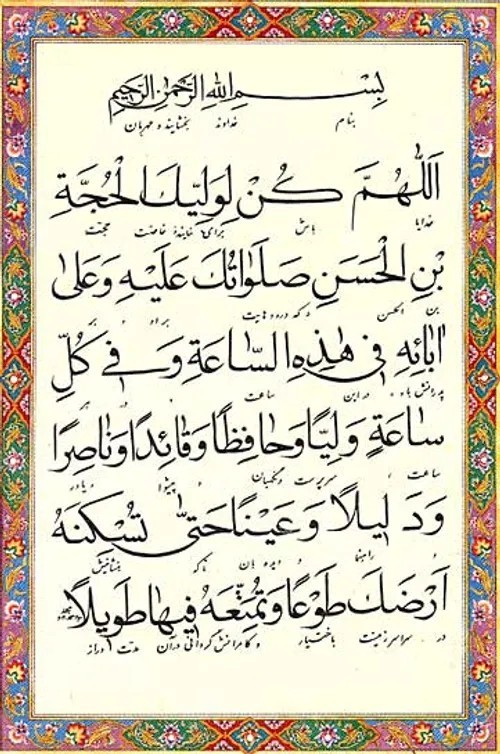 بِسْمِ اللهِ الرَّحْمٰنِ الرَّحِيمِ
بنام خداوند بخشاینده و مهربان
اَللّٰهُمَّ كُنْ لِوَلِيِّكَ الْحُجَّةِ
خدایا باش برای نماینده خاصت حجت
بْنِ الْحَسَنِ صَلَوَاتُكَ عَلَيْهِ وَعَلىٰ
بن الحسن که درودهایت بر او و بر
اٰبَائِهِ فِي هٰذِهِ السَّاعَةِ وَفِي كُلِّ
پدرانش باد در این ساعت و در هر
سَاعَةٍ وَلِيًّا وَحَافِظًا وَقَائِدًا وَنَاصِرًا
ساعت سرپرست و نگهبان و پیشوا و یاور
وَدَلِيلًا وَعَيْنًا حَتّىٰ تُسْكِنَهُ
و راهنما و دیده بان تا که بنشانیش
اَرْضَكَ طَوْعًا وَتُمَتِّعَهُ فِيهَا طَوِيلًا
در سراسر زمینت باختیار و کامرانش گردانی در آن مدت دراز